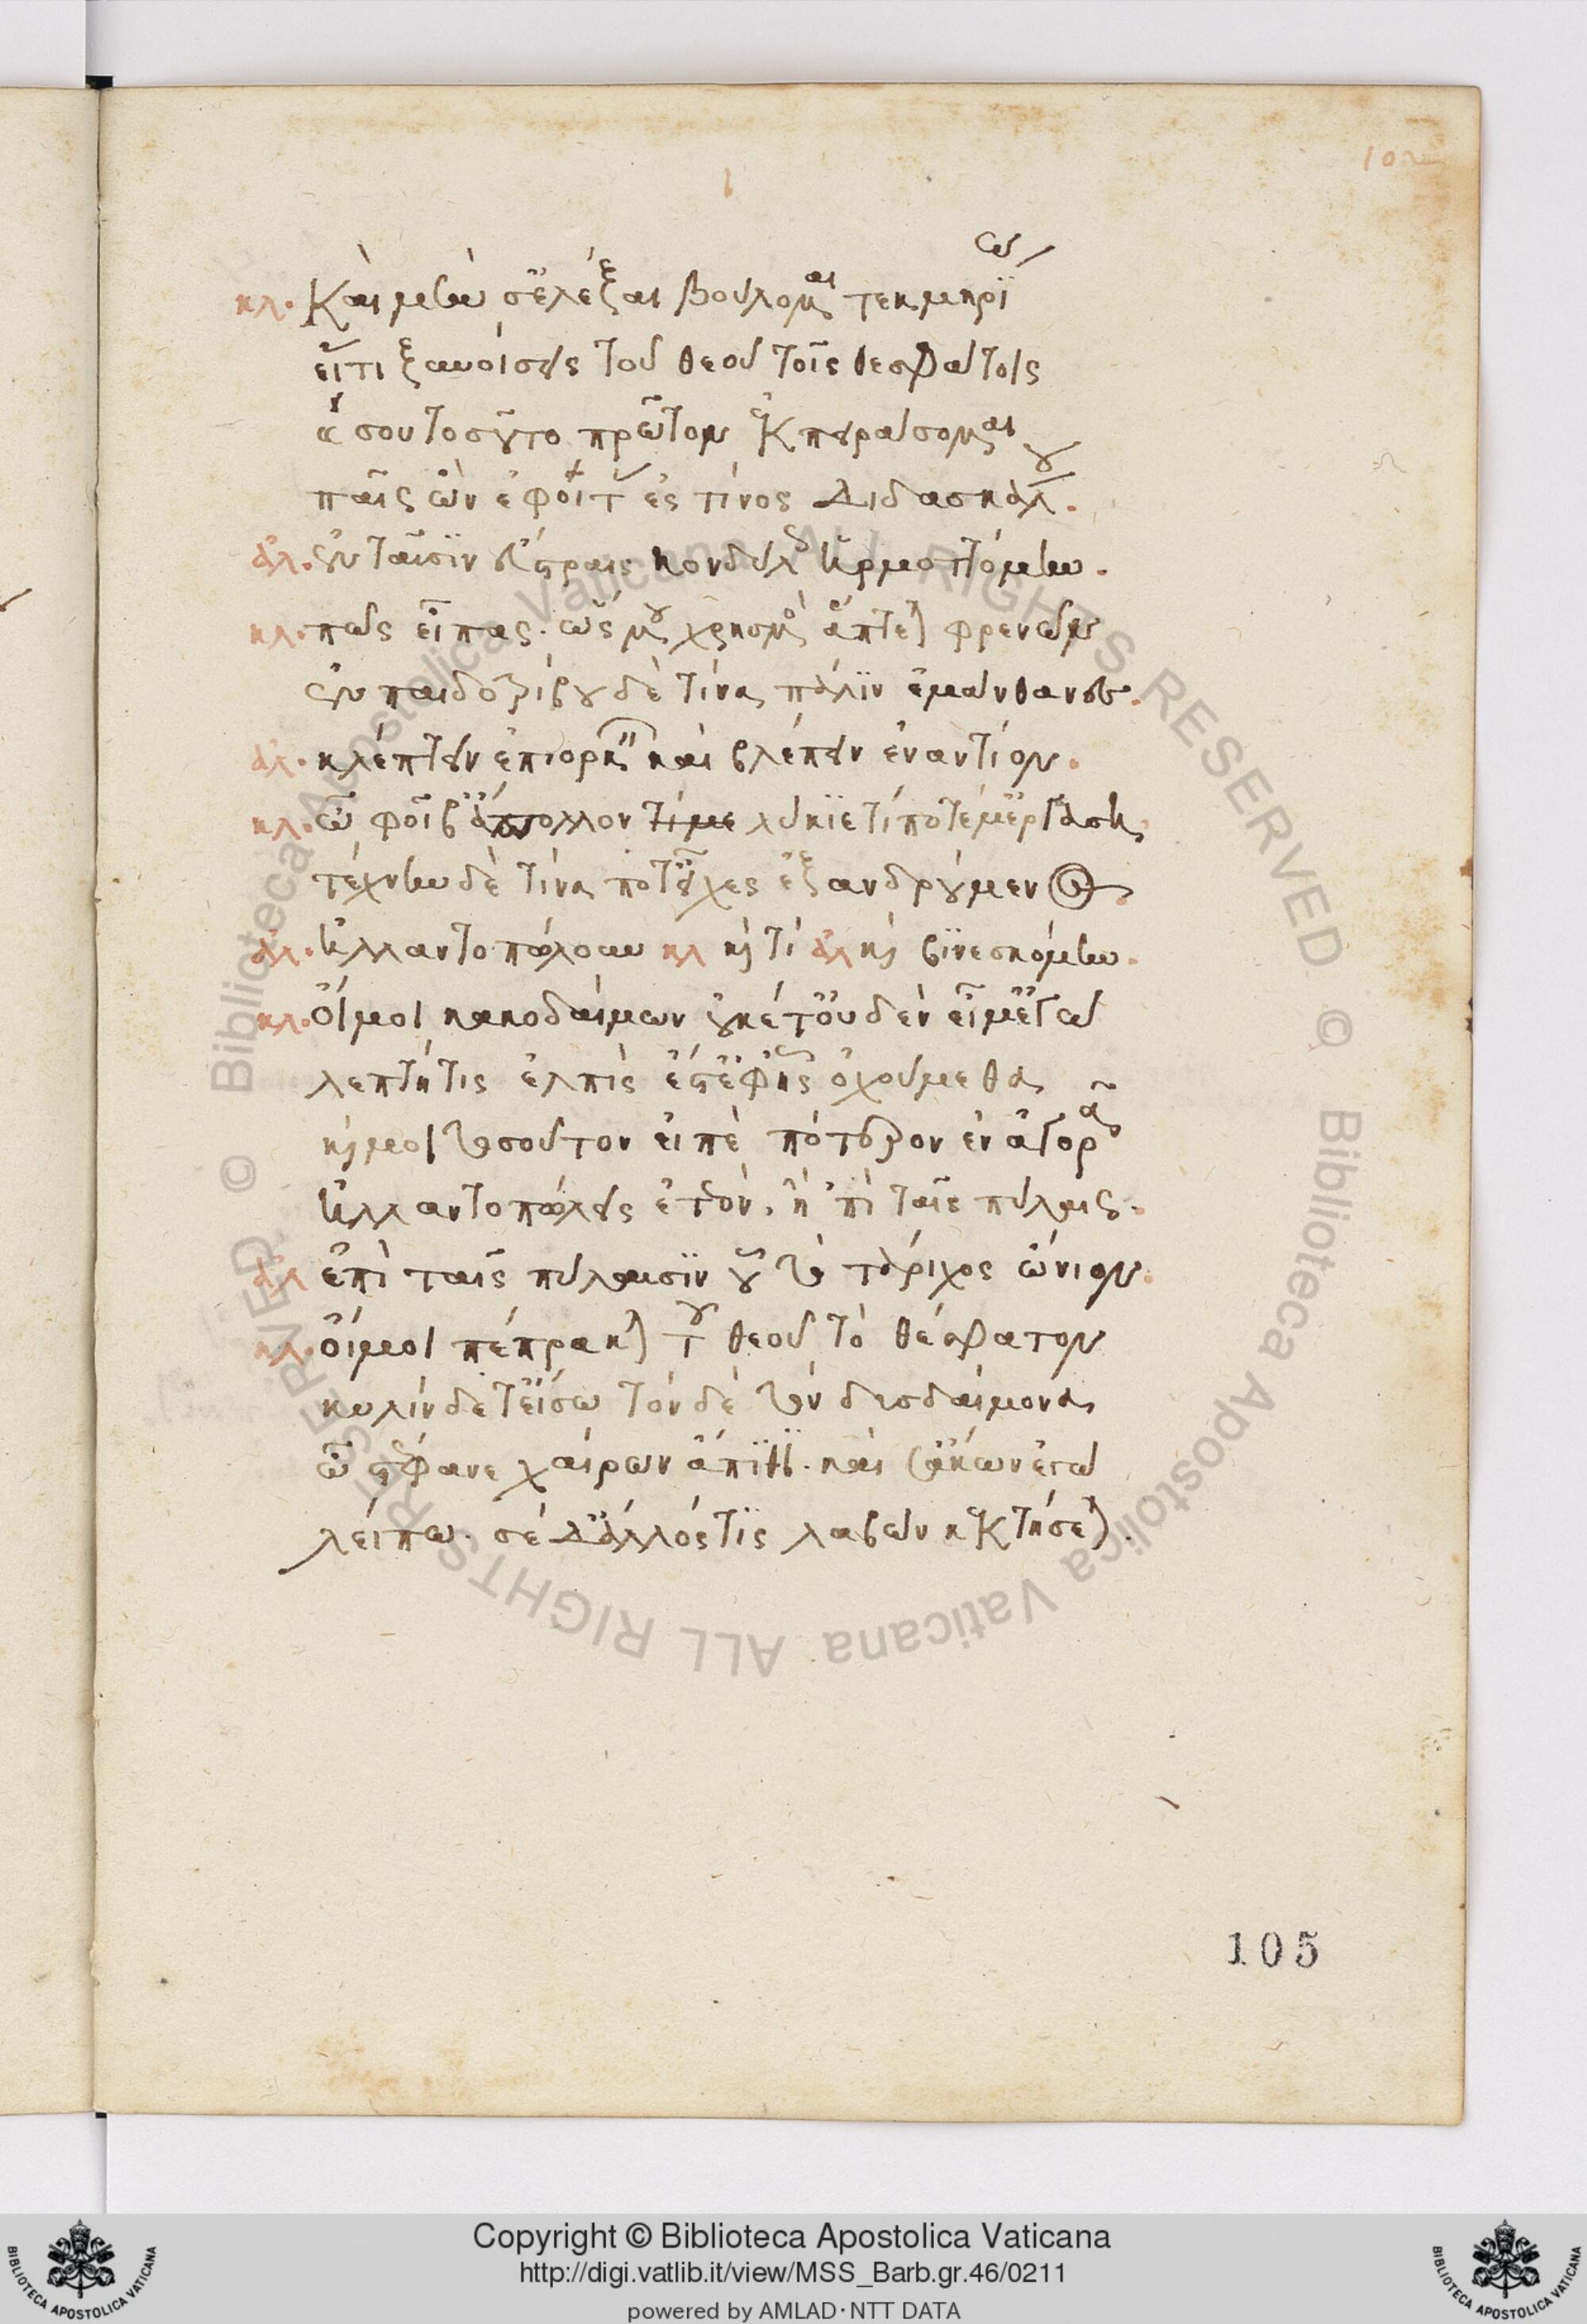 102
κλ. Καὶ μὴν σ' ἐλέγξαι βούλομαι τεκμηρίῳ
εἴ τι ξυνοίσεις τοῦ θεοῦ τοῖς θεσφάτοις
καί σου τοσοῦτο πρῶτον ἐκπειράσομαι
παῖς ὢν ἐφοίτας ἐς τίνος διδασκάλου.
ἀλ. ἐν ταῖσιν εὕστραις κονδύλοις ἡρμοττόμην.
κλ. πῶς εἶπας. ὥς μου χρησμὸς ἅπτεται φρενῶν
ἐν παιδοτρίβου δὲ τίνα πάλην ἐμάνθανες.
ἀλ. κλέπτων ἐπιορκεῖν καὶ βλέπειν ἐναντίον.
κλ. ὦ φοῖβ' ἄπολλον τί με λύκιε τί ποτέ μ' ἐργάσῃ
τέχνην δὲ τίνα ποτ' εἶχες ἐξανδρούμενος
ἀλ. ἠλλαντοπώλουν κλ καὶ τί ἀλ καὶ βινεσκόμην.
κλ. Οἴμοι κακοδαίμων οὐκέτ' οὐδέν εἰμ' ἐγὼ
λεπτή τις ἐλπίς ἐστ' ἐφ' ἧς ὀχούμεθα
καί μοι τοσοῦτον εἰπὲ πότερον ἐν ἀγορᾷ
ἠλλαντοπώλεις ἐτεὸν, ἢ 'πὶ ταῖς πύλαις.
ἀλ ἐπὶ ταῖς πύλαισιν οὗ τὸ τάριχος ὤνιον.
κλ. οἴμοι πέπρακται τοῦ θεοῦ τὸ θέσφατον
κυλίνδετ' εἴσω τόνδε τὸν δυσδαίμονα
ὦ στέφανε χαίρων ἄπιθι. καί σ' ἄκων ἐγὼ
λείπω. σὲ δ' ἄλλός τις λαβὼν κεκτήσεται.
105
© Biblioteca Apostolica Vaticana ALL RIGHTS RESERVED © Biblioteca Apostolica Vaticana ALL RIGHTS RESERVED
Copyright © Biblioteca Apostolica Vaticana
http://digi.vatlib.it/view/MSS_Barb.gr.46/0211
powered by AMLAD·NTT DATA
BIBLIOTECA APOSTOLICA VATICANA
BIBLIOTECA APOSTOLICA VATICANA